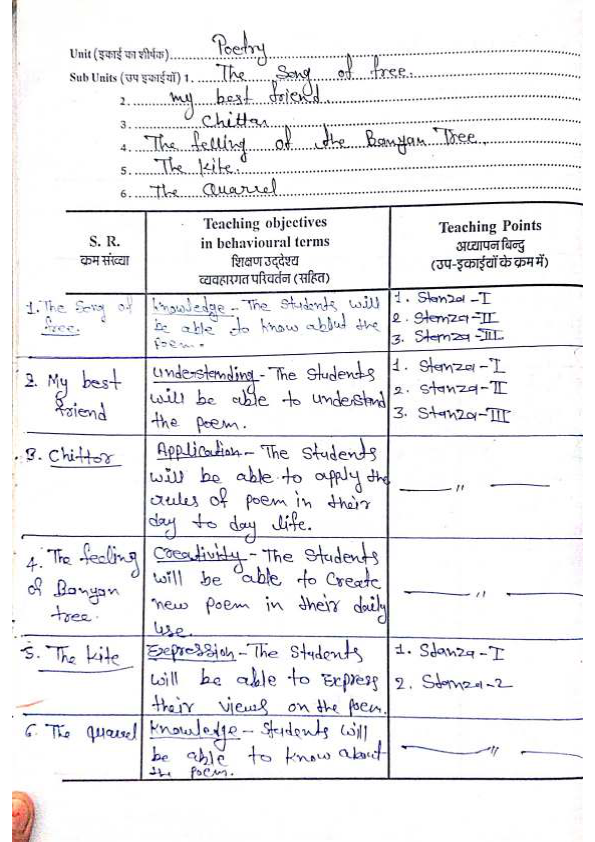 Unit (इकाई का शीर्षक) Poetry
Sub Units (उप इकाईयाँ) 1. The Song of free.
2. my best friend.
3. Chittar
4. The felling of the Banyan Tree.
5. The Kite.
6. The Quarrel
S. R.
क्रम संख्या
Teaching objectives
in behavioural terms
शिक्षण उद्देश्य
व्यवहारगत परिवर्तन (सहित)
Teaching Points
अध्यापन बिन्दु
(उप-इकाईयों के क्रम में)
1. The Song of
free.
Knowledge - The Students will
be able to know about the
poem.
1. Stanza - I
2. Stanza - II
3. Stanza - III
2. My best
friend
Understanding - The Students
will be able to understand
the poem.
1. Stanza - I
2. Stanza - II
3. Stanza - III
3. Chittor
Application - The Students
will be able to apply the
rules of poem in their
day to day life.
— " —
4. The feeling
of Banyan
tree.
Creativity - The Students
will be able to Create
new poem in their daily
use.
— " —
5. The Kite
Expression - The Students
will be able to Express
their views on the poem.
1. Stanza - I
2. Stanza - 2
6. The quarrel
Knowledge - Students will
be able to know about
the poem.
— " —